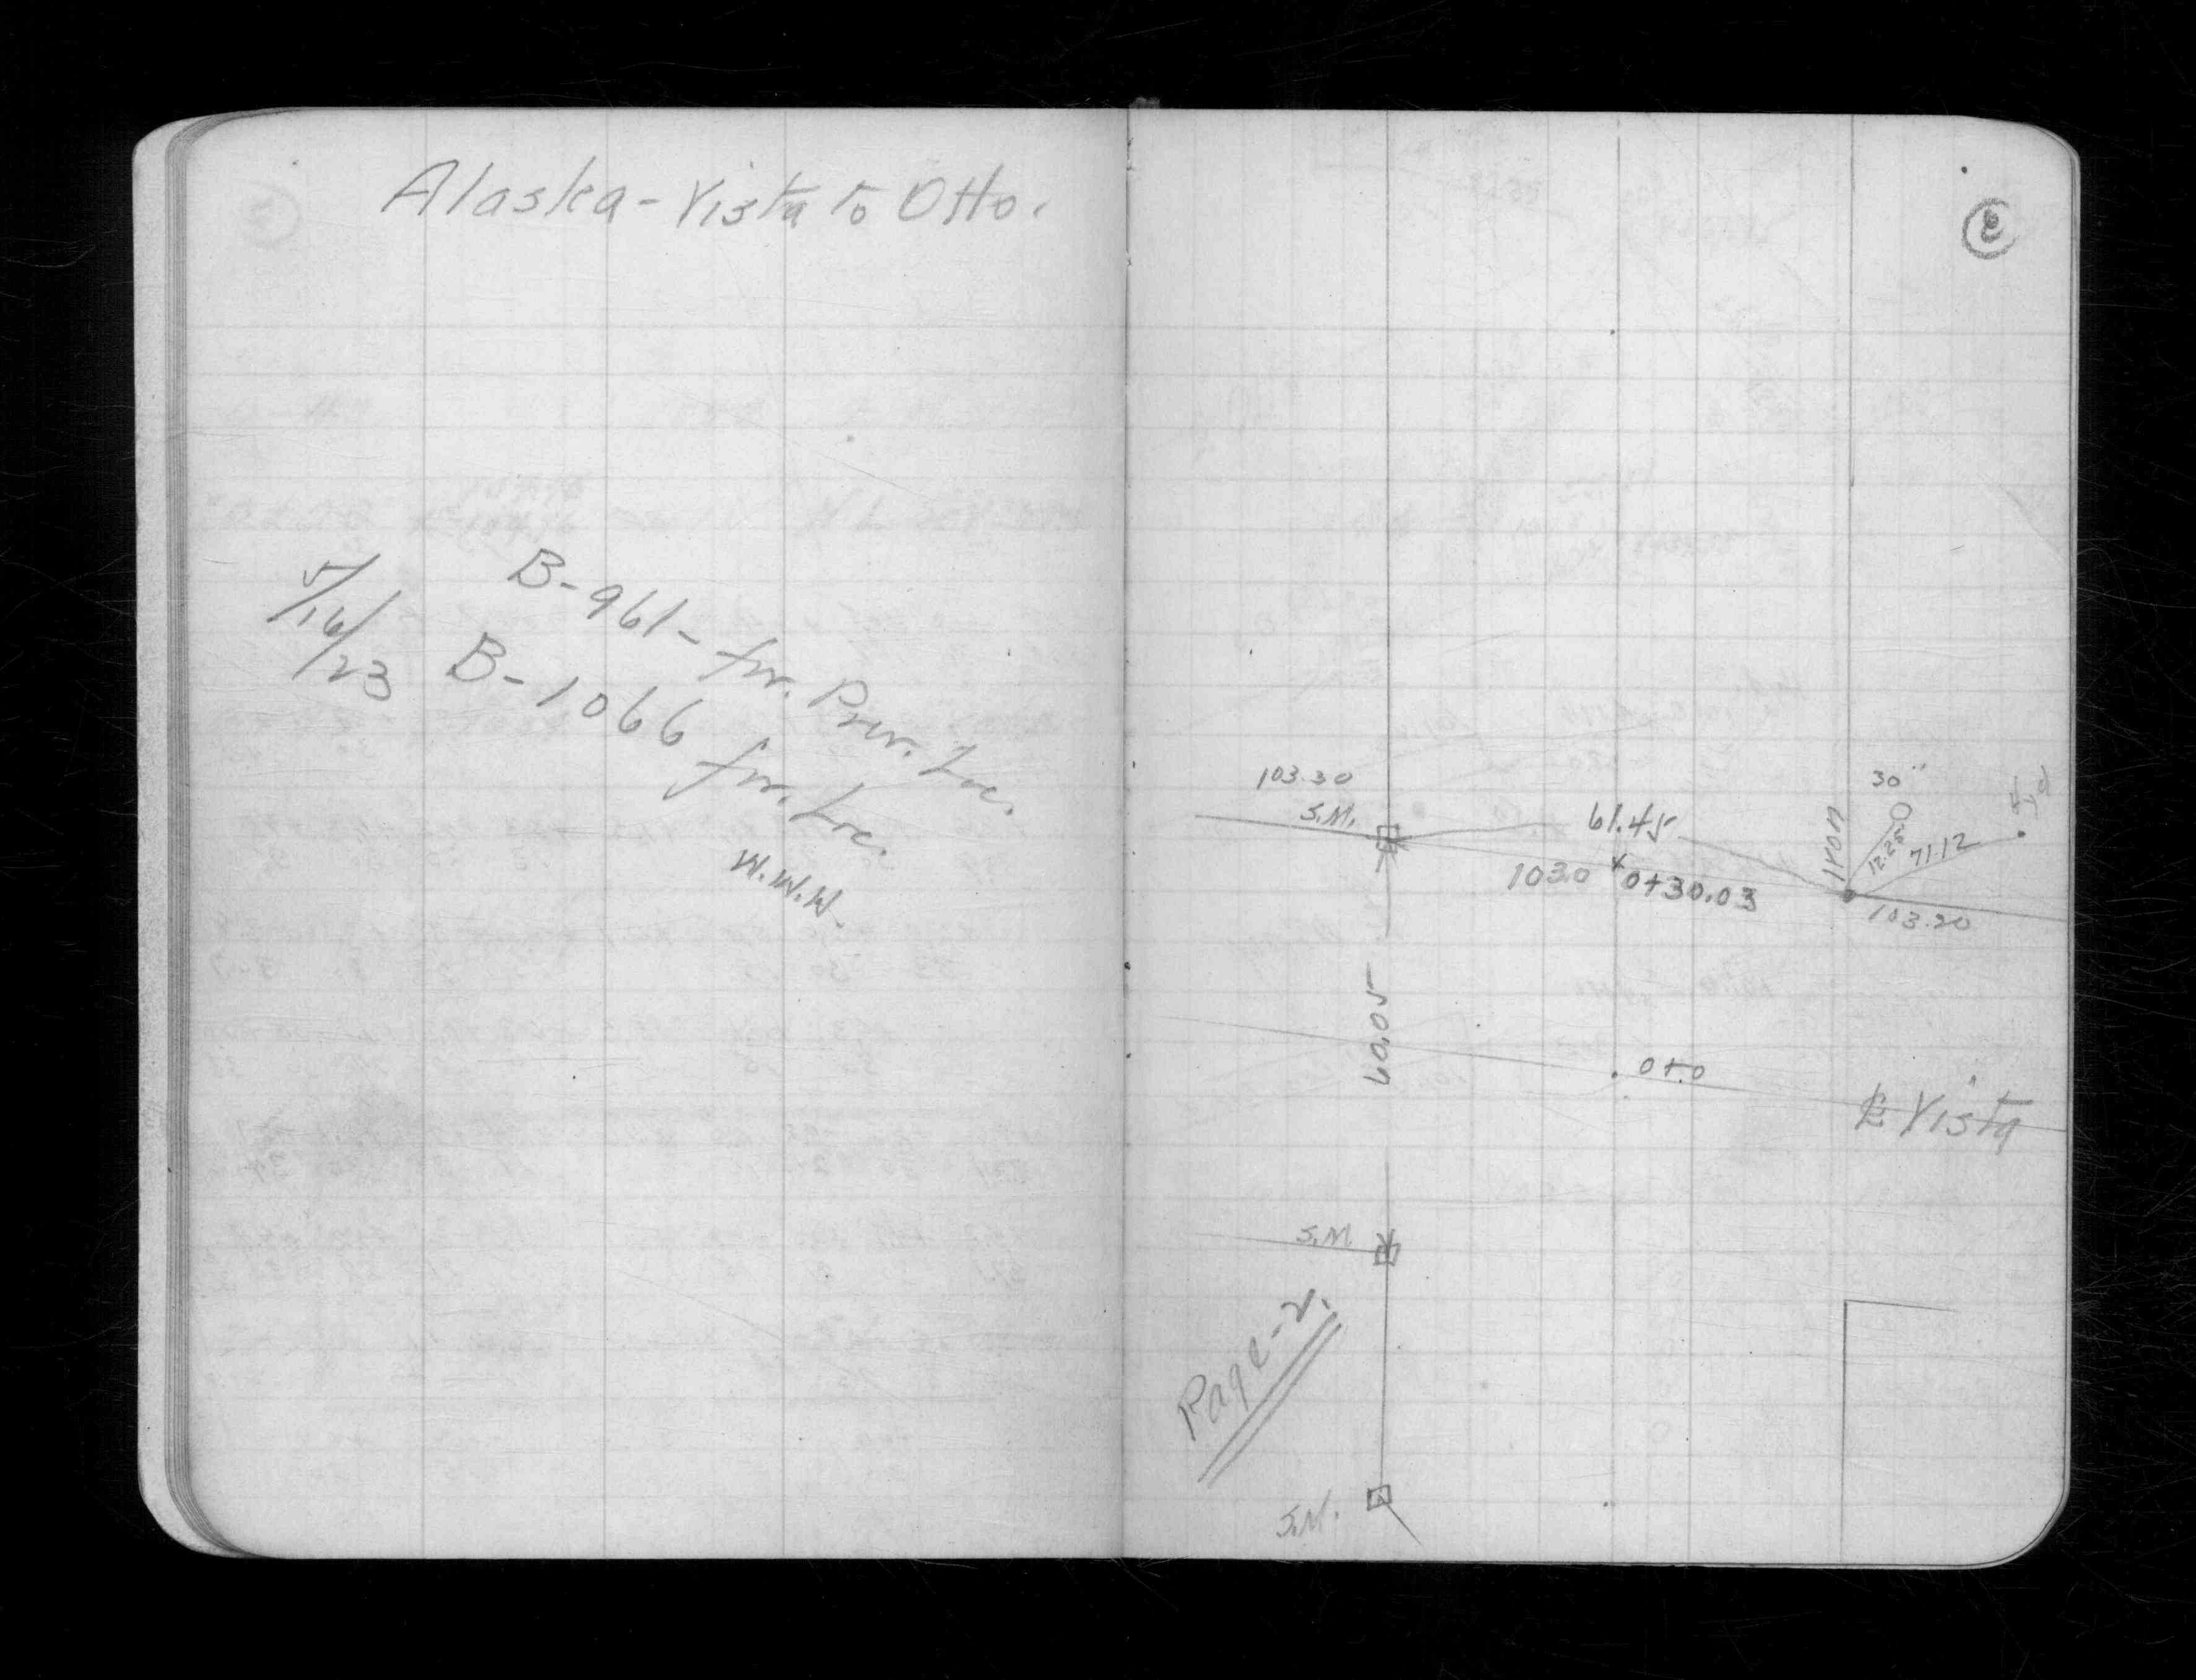 Alaska - Vista to Otto.
5/16/23
B-961- for. Prev. Loc.
B-1066 for. Loc.
W.W.W.
3
103.30
S.M.
61.45
103.0
0+30.03
IRON
30"
12.25
71.12
103.20
60.05
0+0
℄ Vista
S.M.
Page-2.
S.M.